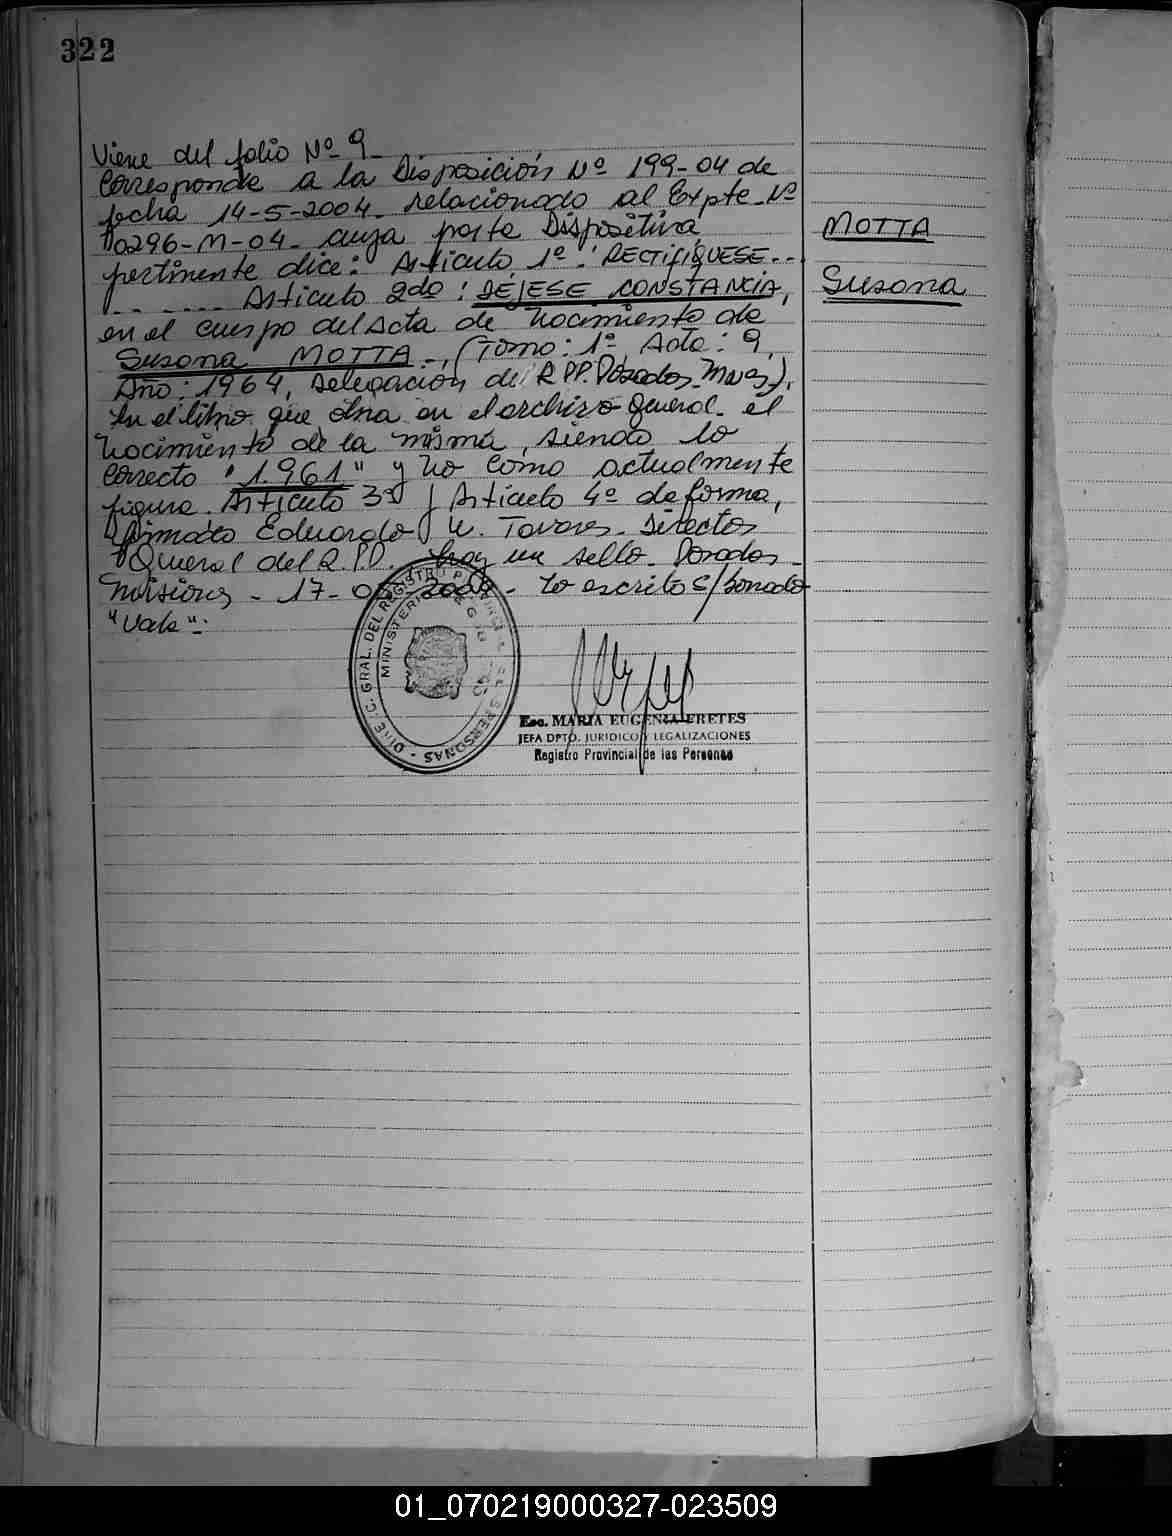 322
Viene del folio Nº 9_
Corresponde a la Disposición Nº 199-04 de
fecha 14-5-2004_ relacionado al Expte_Nº
10296-M-04_ cuya parte Dispositiva
pertinente dice: Artículo 1º: RECTIFIQUESE...
....... Artículo 2do: DÉJESE CONSTANCIA,
en el cuerpo del Acta de Nacimiento de
Susana MOTTA_, (Tomo: 1º Acta: 9,
Año: 1964, Delegación del R.PP. Posadas_Mnes),
en el libro que obra en el archivo general_ el
Nacimiento de la misma, siendo lo
Correcto "1.961" y no como actualmente
figura. Artículo 3º y Artículo 4º de forma,
firmado Eduardo Tavares_ Director
General del R.P.P. hay un sello_ Posadas_
Misiones_ 17- _ lo escrito s/borrado
"Vale"._
MOTTA
Susana
DIREC. GRAL. DEL REGISTRO PROVINCIAL DE LAS PERSONAS
MINISTERIO DE GOBIERNO
Esc. MARIA EUGENIA FRETES
JEFA DPTO. JURIDICO Y LEGALIZACIONES
Registro Provincial de las Personas
01_070219000327-023509